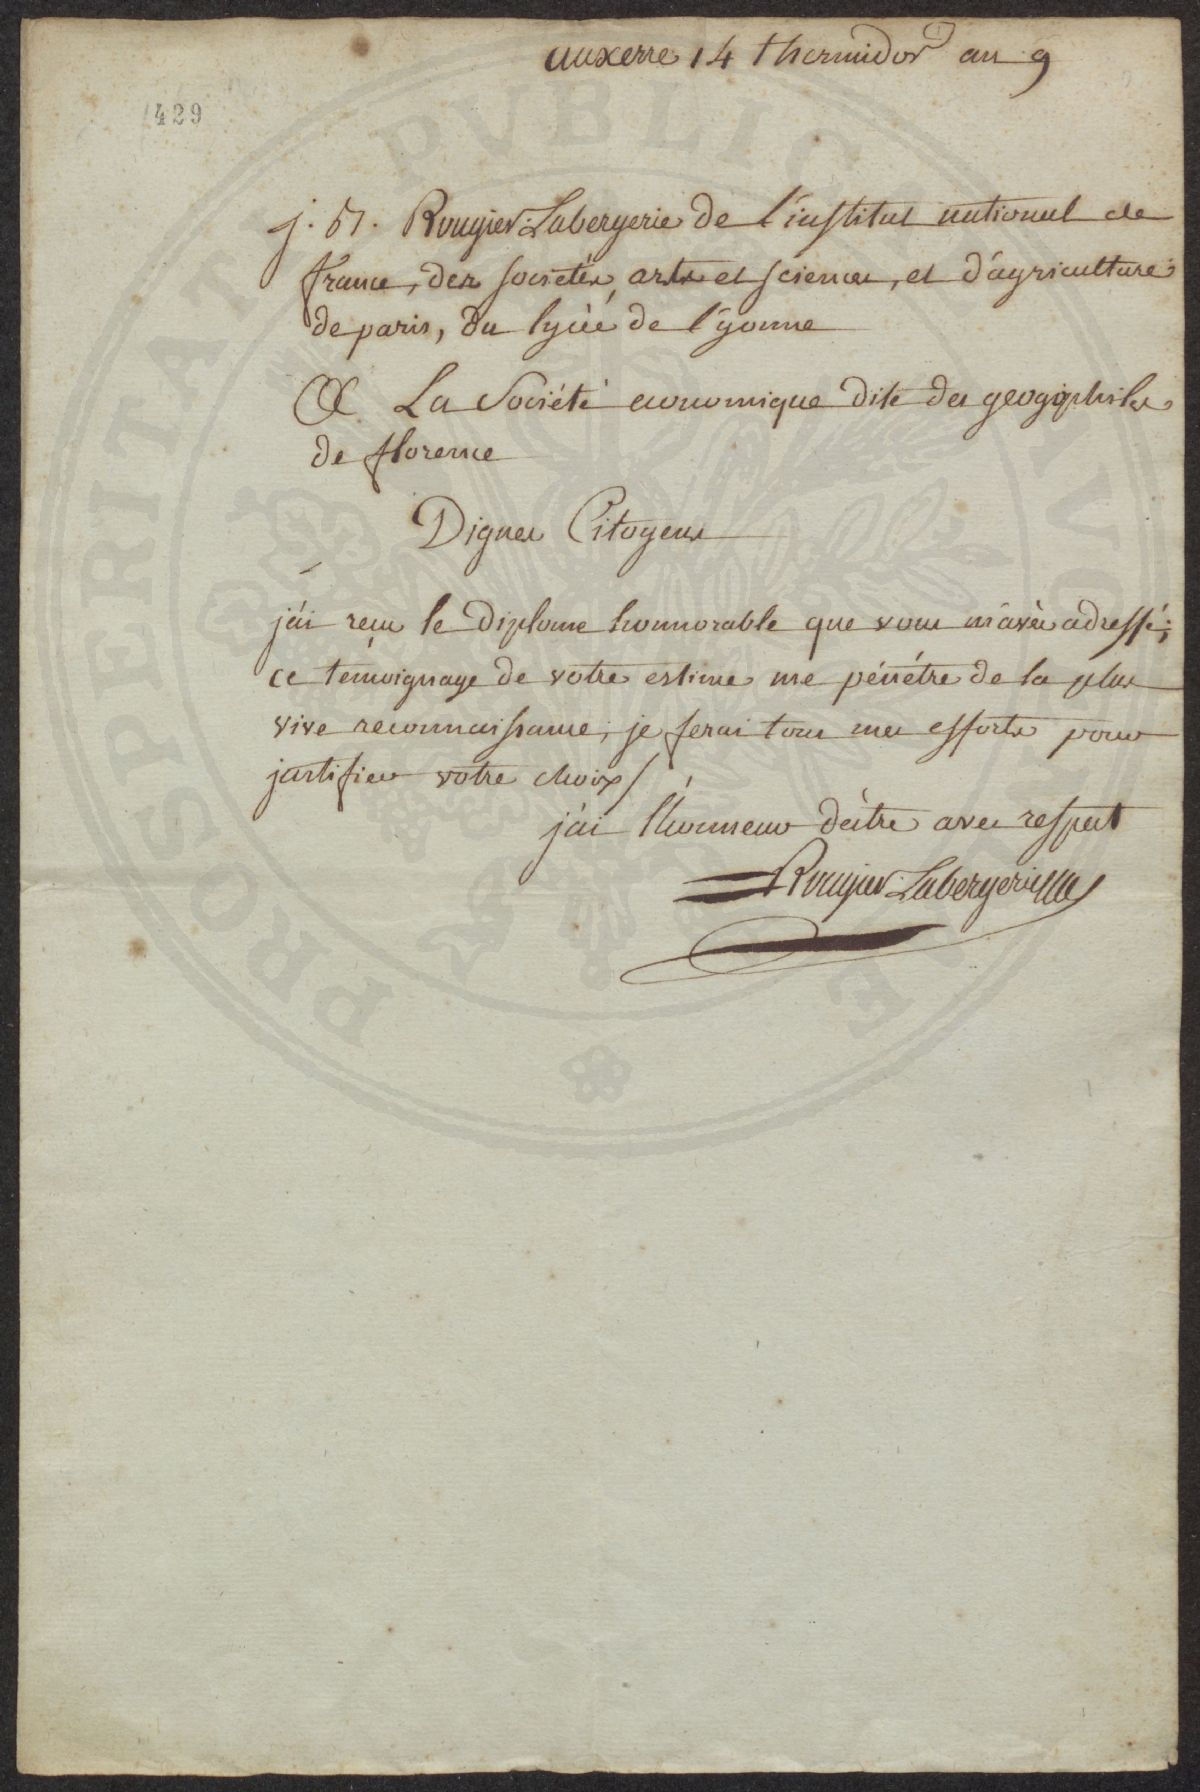 auxerre 14 thermidor an 9
429
j. B. Rougier-Labergerie de l'institut national de
france, des societés, arts et sciences, et d'agriculture
de paris, du lycée de l'yonne
A La Société economique dite des geogophiles
de florence
Dignes Citoyens
j'ai recu le diplome honnorable que vous m'avés adressé;
ce témoignage de votre estime me pénétre de la plus
vive reconnaissance; je ferai tous mes efforts pour
justifier votre choix/
j'ai l'honneur d'être avec respect
Rougier-Labergerie
PROSPERITATI PVBLICAE AVGENDAE